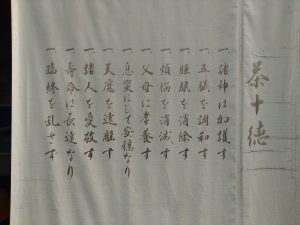 茶十徳
一、諸神は加護す
一、五臓を調和す
一、睡眠を消除す
一、煩悩を消滅す
一、父母に孝養す
一、息災にして安穏なり
一、天魔を遠離す
一、諸人を愛敬す
一、寿命は長遠なり
一、臨終を乱さず